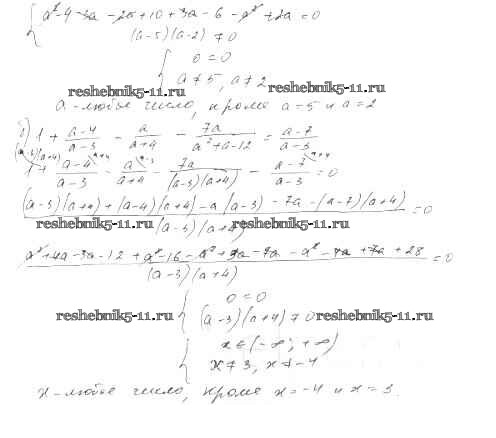 a² - 4 - 3a - 2a + 10 + 3a - 6 - a² + 2a = 0
(a-5)(a-2) ≠ 0
0 = 0
a ≠ 5, a ≠ 2
reshebnik5-11.ru reshebnik5-11.ru
a - любое число, кроме a = 5 и a = 2
б) 1 + (a-4)/(a-3) - a/(a+4) - 7a/(a²+a-12) = (a-7)/(a-3)
1 + (a-4)/(a-3) - a/(a+4) - 7a/((a-3)(a+4)) - (a-7)/(a-3) = 0
(a-3)(a+4) + (a-4)(a+4) - a(a-3) - 7a - (a-7)(a+4)
reshebnik5-11.ru (a-3)(a+4) reshebnik5-11.ru = 0
a² + 4a - 3a - 12 + a² - 16 - a² + 3a - 7a - a² - 4a + 7a + 28 = 0
(a-3)(a+4)
0 = 0
reshebnik5-11.ru (a-3)(a+4) ≠ 0 reshebnik5-11.ru
x ∈ (-∞; +∞)
x ≠ 3, x ≠ -4
x - любое число, кроме x = -4 и x = 3.